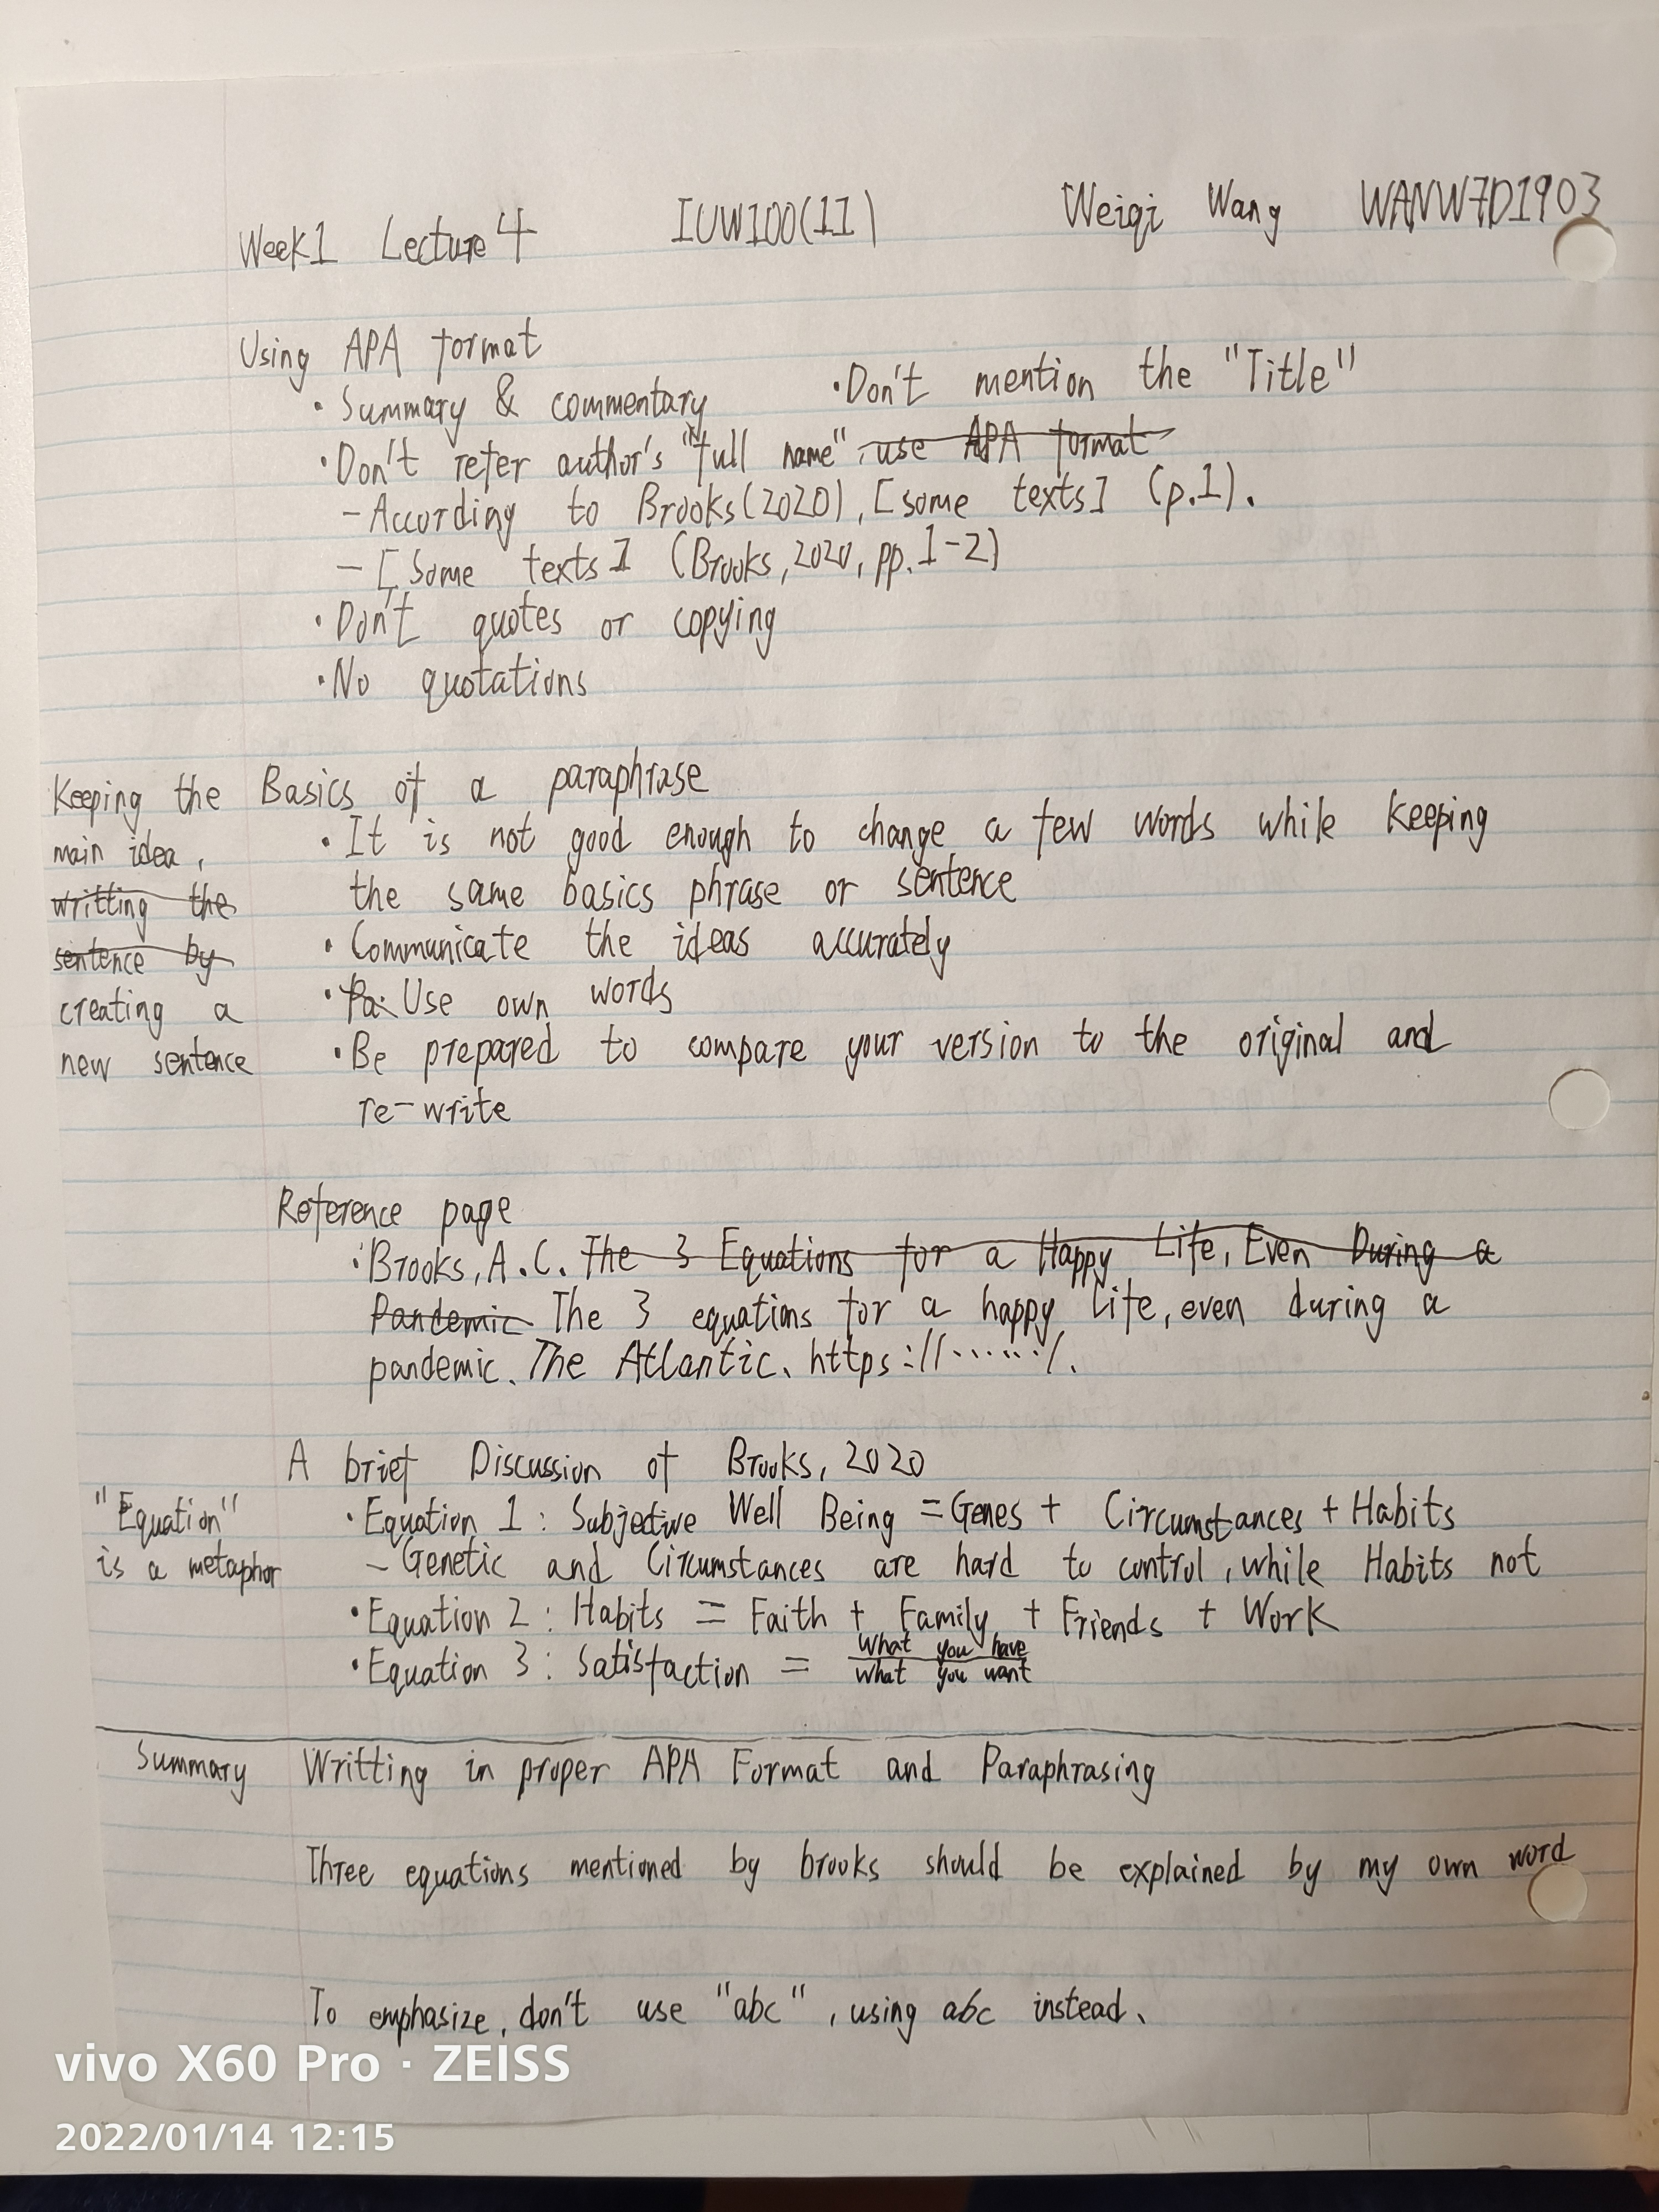 Week1 Lecture 4 IUW100(11) Weiqi Wang WANW7D1903
Using APA format
· Summary & commentary · Don't mention the "Title"
· Don't refer author's "full name" , use APA format
- According to Brooks(2020), [some texts] (p.1).
- [Some texts] (Brooks, 2020, pp.1-2)
· Don't quotes or copying
· No quotations
Keeping the
main idea,
writting the
sentence by
creating a
new sentence
Basics of a paraphrase
· It is not good enough to change a few words while keeping
the same basics phrase or sentence
· Communicate the ideas accurately
· Pa. Use own words
· Be prepared to compare your version to the original and
re-write
Reference page
· Brooks, A.C. The 3 Equations for a Happy Life, Even During a
Pandemic The 3 equations for a happy life, even during a
pandemic. The Atlantic. https://....../.
A brief Discussion of Brooks, 2020
"Equation"
is a metaphor
· Equation 1 : Subjective Well Being = Genes + Circumstances + Habits
- Genetic and Circumstances are hard to control, while Habits not
· Equation 2 : Habits = Faith + Family + Friends + Work
· Equation 3 : Satisfaction = What you have
what you want
Summary Writting in proper APA Format and Paraphrasing
Three equations mentioned by brooks should be explained by my own word
To emphasize, don't use "abc", using abc instead.
vivo X60 Pro · ZEISS
2022/01/14 12:15